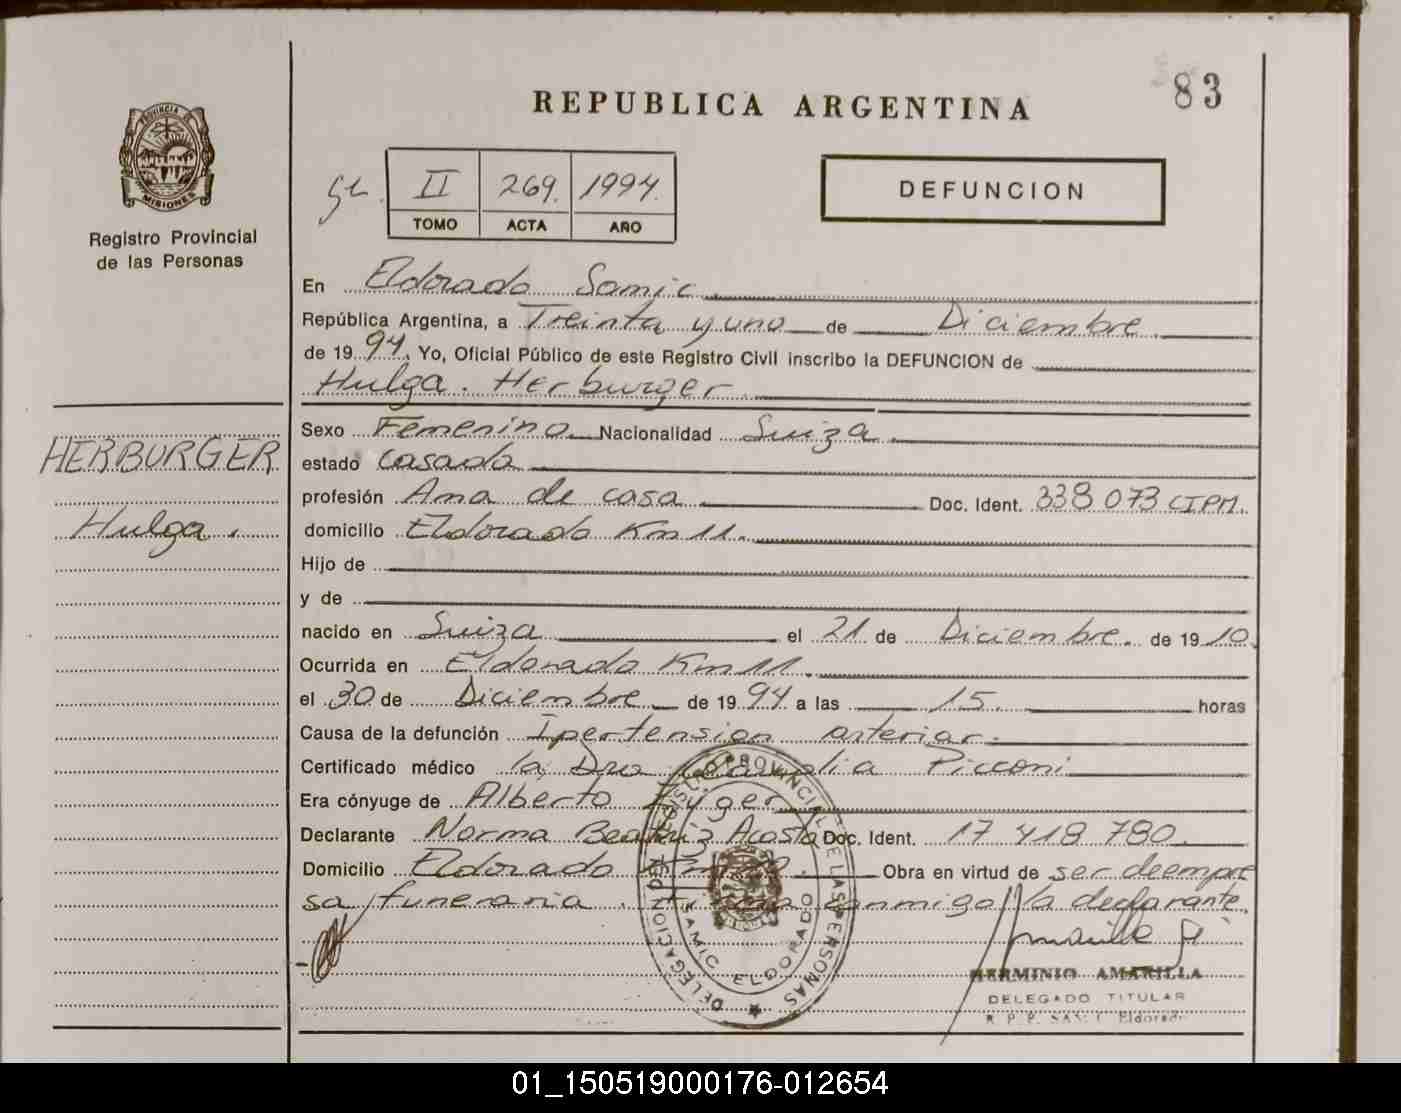 83
REPUBLICA ARGENTINA
PROVINCIA DE
MISIONES
Registro Provincial
de las Personas
II 269. 1994.
TOMO ACTA AÑO
DEFUNCION
En Eldorado Samic
República Argentina, a Treinta y uno de Diciembre.
de 1994. Yo, Oficial Público de este Registro Civil inscribo la DEFUNCION de
Hulga. Herburger
HERBURGER
Hulga.
Sexo Femenino Nacionalidad Suiza
estado casada
profesión Ama de casa Doc. Ident. 338 073 CIPM.
domicilio Eldorado Km 11.
Hijo de
y de
nacido en Suiza el 21 de Diciembre. de 1910
Ocurrida en Eldorado Km 11.
el 30 de Diciembre de 1994 a las 15. horas
Causa de la defunción Ipertension arteriar.
Certificado médico la Dra Picconi
Era cónyuge de Alberto
Declarante Norma Beatriz Acosta Doc. Ident. 17 418 780.
Domicilio Eldorado Obra en virtud de ser deempre
sa funeraria. conmigo la declarante.
REGISTRO PROVINCIAL DE LAS PERSONAS
DELEGACION
SAMIC ELDORADO
HERMINIO AMARILLA
DELEGADO TITULAR
R. P. P. SAMIC Eldorado
01_150519000176-012654